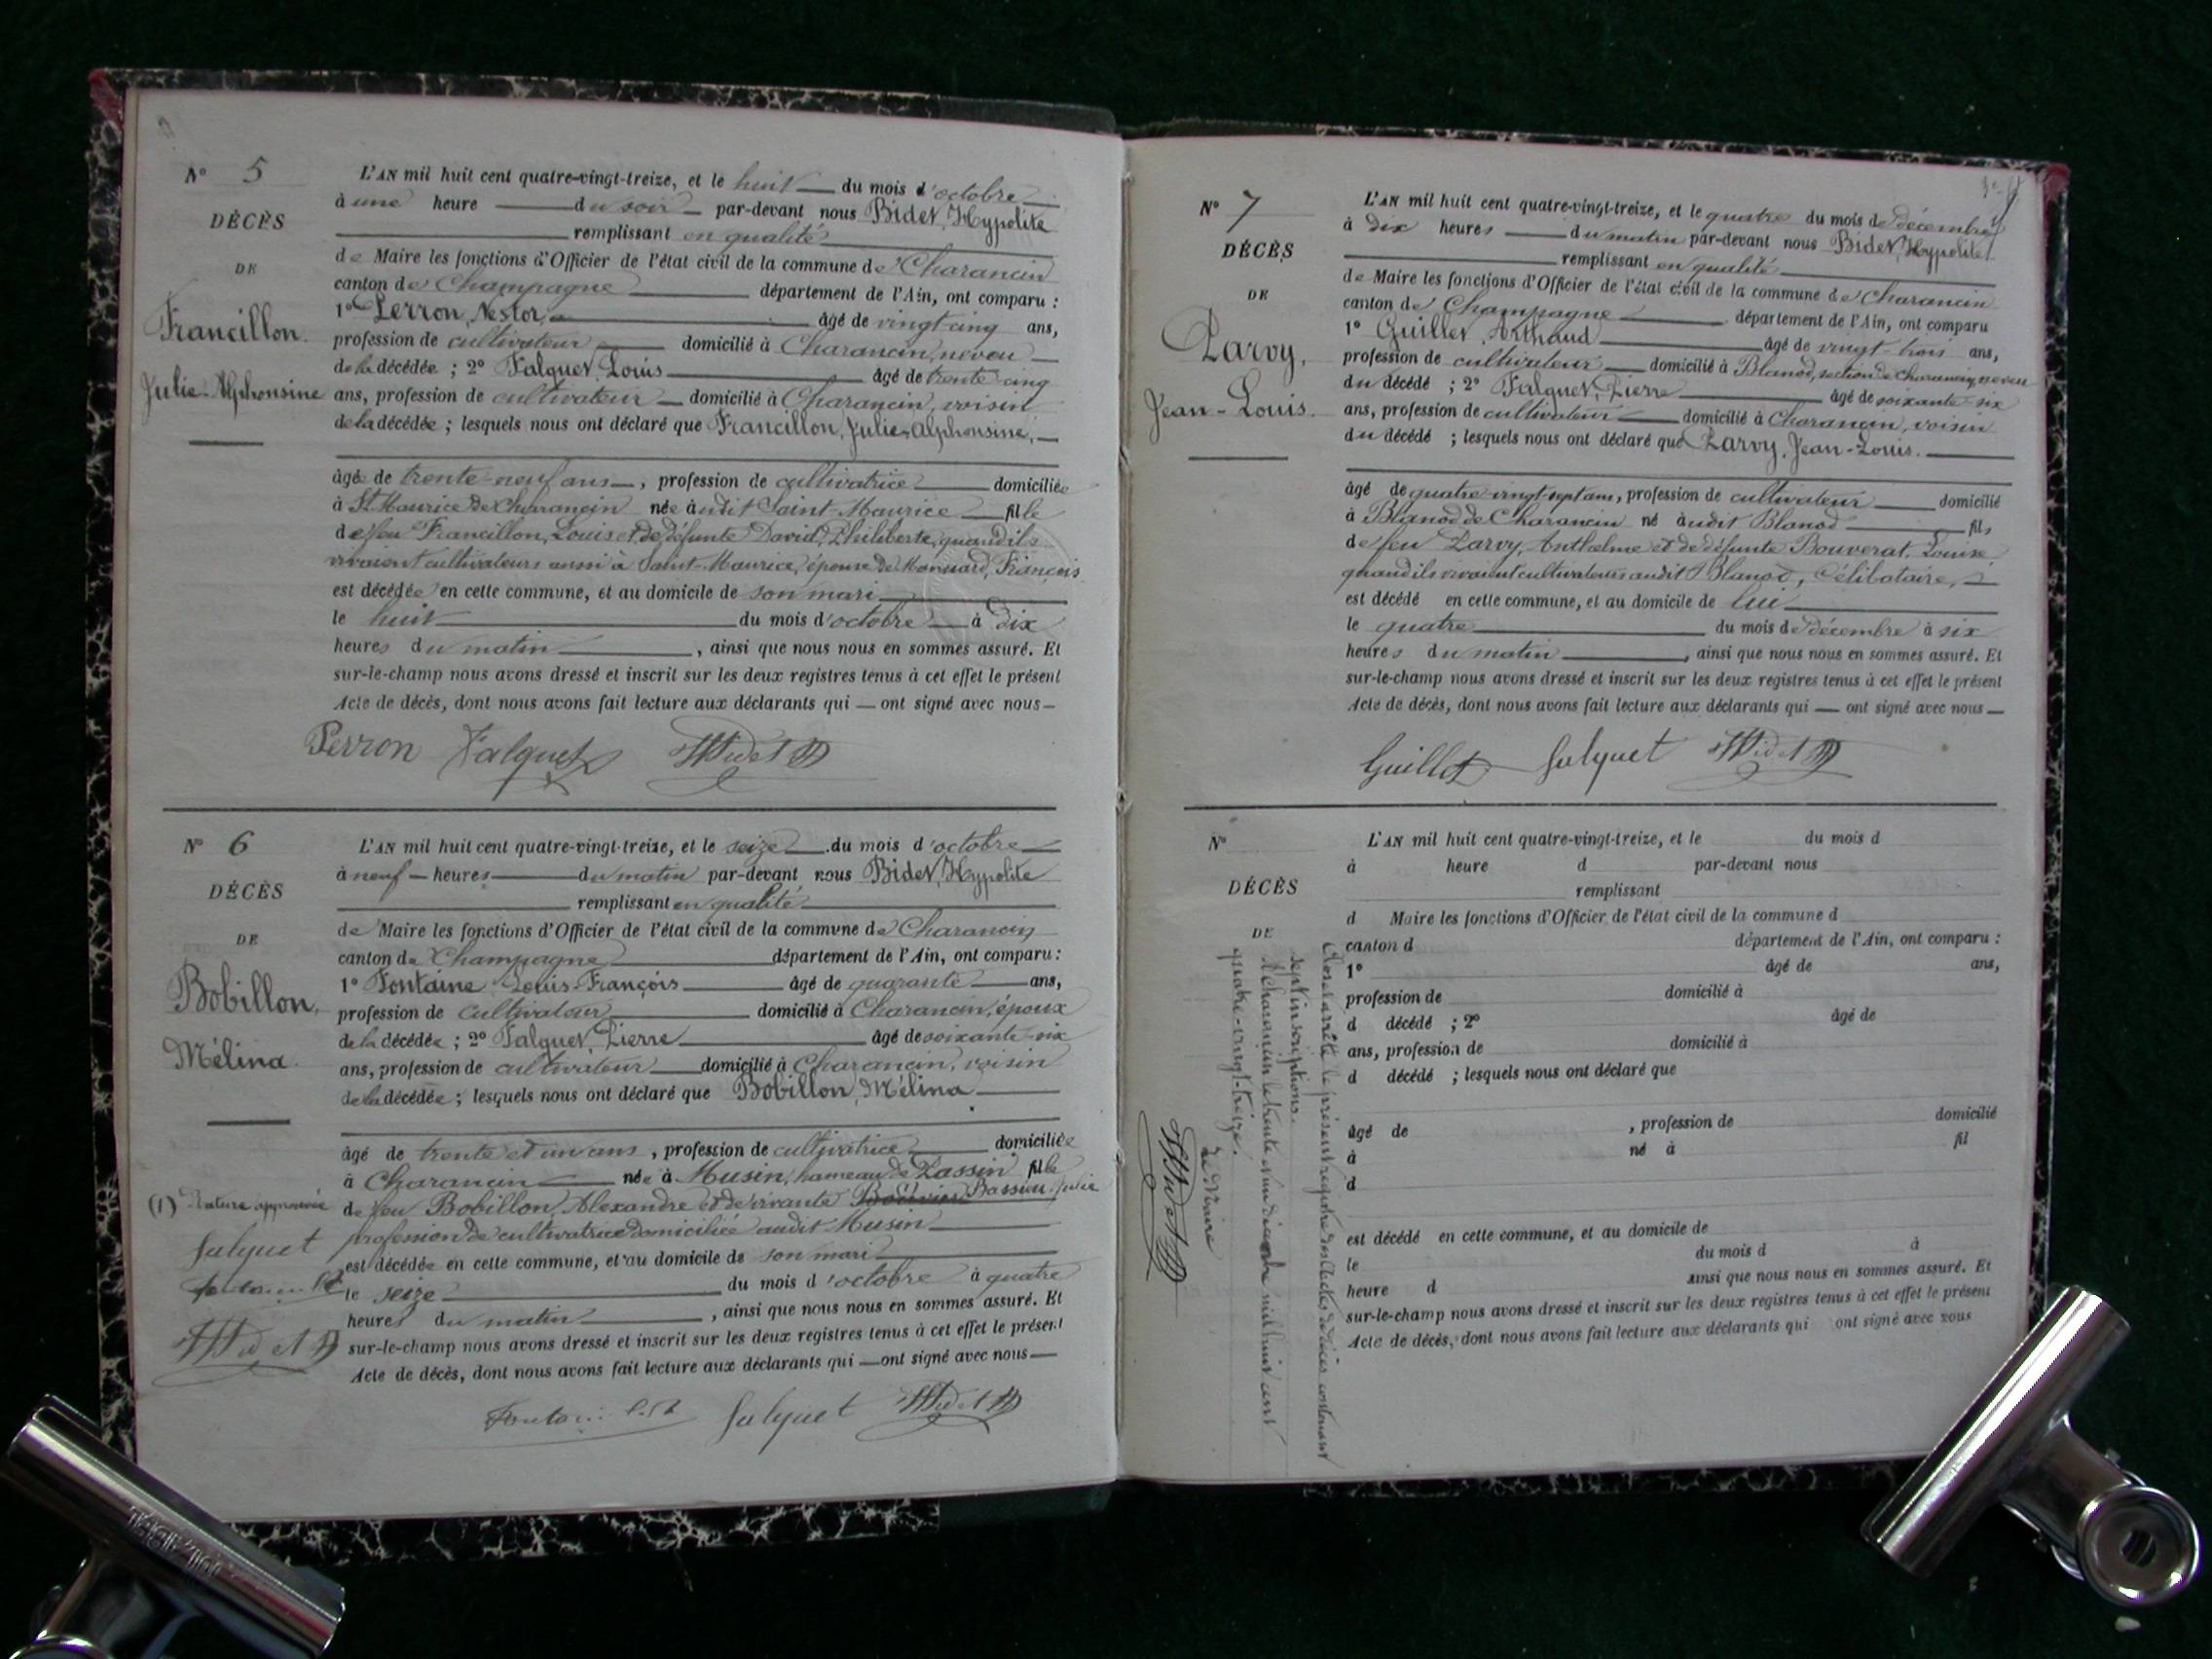 N° 5
DÉCÈS
DE
Francillon.
Julie-Alphonsine
L'AN mil huit cent quatre-vingt-treize, et le huit du mois d'octobre
à une heure du soir par-devant nous Bidet, Hypolite
remplissant en qualité
de Maire les fonctions d'Officier de l'état civil de la commune de Charancin
canton de Champagne département de l'Ain, ont comparu :
1° Perron, Nestor, âgé de vingt-cinq ans,
profession de cultivateur domicilié à Charancin, neveu
de la décédée ; 2° Falquet, Louis âgé de trente-cinq
ans, profession de cultivateur domicilié à Charancin, voisin
de la décédée ; lesquels nous ont déclaré que Francillon, Julie, Alphonsine,
âgée de trente-neuf ans, profession de cultivatrice domiciliée
à St Maurice de Charancin née àudit Saint-Maurice fille
de feu Francillon, Louis et de défunte David, Philiberte, quand ils
vivaient cultivateurs aussi à Saint-Maurice, épouse de Monnard, François
est décédée en cette commune, et au domicile de son mari
le huit du mois d'octobre à dix
heures du matin, ainsi que nous nous en sommes assuré. Et
sur-le-champ nous avons dressé et inscrit sur les deux registres tenus à cet effet le présent
Acte de décès, dont nous avons fait lecture aux déclarants qui — ont signé avec nous —
Perron Falquet HBidet
N° 6
DÉCÈS
DE
Bobillon,
Mélina.
L'AN mil huit cent quatre-vingt-treize, et le seize du mois d'octobre
à neuf heures du matin par-devant nous Bidet, Hypolite
remplissant en qualité
de Maire les fonctions d'Officier de l'état civil de la commune de Charancin
canton de Champagne département de l'Ain, ont comparu :
1° Fontaine Louis-François âgé de quarante ans,
profession de cultivateur domicilié à Charancin, époux
de la décédée ; 2° Falquet, Pierre âgé de soixante-six
ans, profession de cultivateur domicilié à Charancin, voisin
de la décédée ; lesquels nous ont déclaré que Bobillon, Mélina
âgé de trente et un ans, profession de cultivatrice domiciliée
à Charancin née à Musin, hameau de Passin fille
de feu Bobillon, Alexandre et de vivante Bassieu Julie
profession de cultivatrice domiciliée audit Musin
est décédée en cette commune, et au domicile de son mari
le seize du mois d'octobre à quatre
heures du matin, ainsi que nous nous en sommes assuré. Et
sur-le-champ nous avons dressé et inscrit sur les deux registres tenus à cet effet le présent
Acte de décès, dont nous avons fait lecture aux déclarants qui — ont signé avec nous —
(1) Rature approuvée
Falquet
HBidet
Falquet HBidet
N° 7
DÉCÈS
DE
Parvy,
Jean-Louis.
L'AN mil huit cent quatre-vingt-treize, et le quatre du mois de décembre
à dix heures du matin par-devant nous Bidet, Hypolite
remplissant en qualité
de Maire les fonctions d'Officier de l'état civil de la commune de Charancin
canton de Champagne département de l'Ain, ont comparu
1° Guillet, Arthaud âgé de vingt-trois ans,
profession de cultivateur domicilié à Blanod, section de Charancin, neveu
du décédé ; 2° Falquet, Pierre âgé de soixante-six
ans, profession de cultivateur domicilié à Charancin, voisin
du décédé ; lesquels nous ont déclaré que Parvy, Jean-Louis.
âgé de quatre-vingt-sept ans, profession de cultivateur domicilié
à Blanod de Charancin né àudit Blanod fils
de feu Parvy, Anthelme et de défunte Bouverat, Louise
quand ils vivaient cultivateurs audit Blanod, Célibataire,
est décédé en cette commune, et au domicile de lui
le quatre du mois de décembre à six
heures du matin, ainsi que nous nous en sommes assuré. Et
sur-le-champ nous avons dressé et inscrit sur les deux registres tenus à cet effet le présent
Acte de décès, dont nous avons fait lecture aux déclarants qui — ont signé avec nous —
Guillet Falquet HBidet
N°
DÉCÈS
DE
L'AN mil huit cent quatre-vingt-treize, et le du mois d
à heure d par-devant nous
remplissant
d Maire les fonctions d'Officier de l'état civil de la commune d
canton d département de l'Ain, ont comparu :
1° âgé de ans,
profession de domicilié à
d décédé ; 2° âgé de
ans, profession de domicilié à
d décédé ; lesquels nous ont déclaré que
âgé de , profession de domicilié
à né à fil
d
est décédé en cette commune, et au domicile de
le du mois d à
heure d ainsi que nous nous en sommes assuré. Et
sur-le-champ nous avons dressé et inscrit sur les deux registres tenus à cet effet le présent
Acte de décès, dont nous avons fait lecture aux déclarants qui ont signé avec nous
Clos et arrêté le présent registre des Actes de Décès contenant
sept inscriptions.
A Charancin le trente et un décembre mil huit cent
quatre-vingt-treize.
Le Maire
HBidet